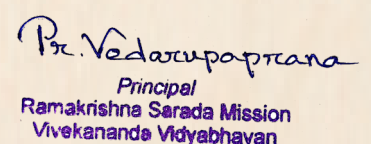 Pr. Vedarupaprana
Principal
Ramakrishna Sarada Mission
Vivekananda Vidyabhavan